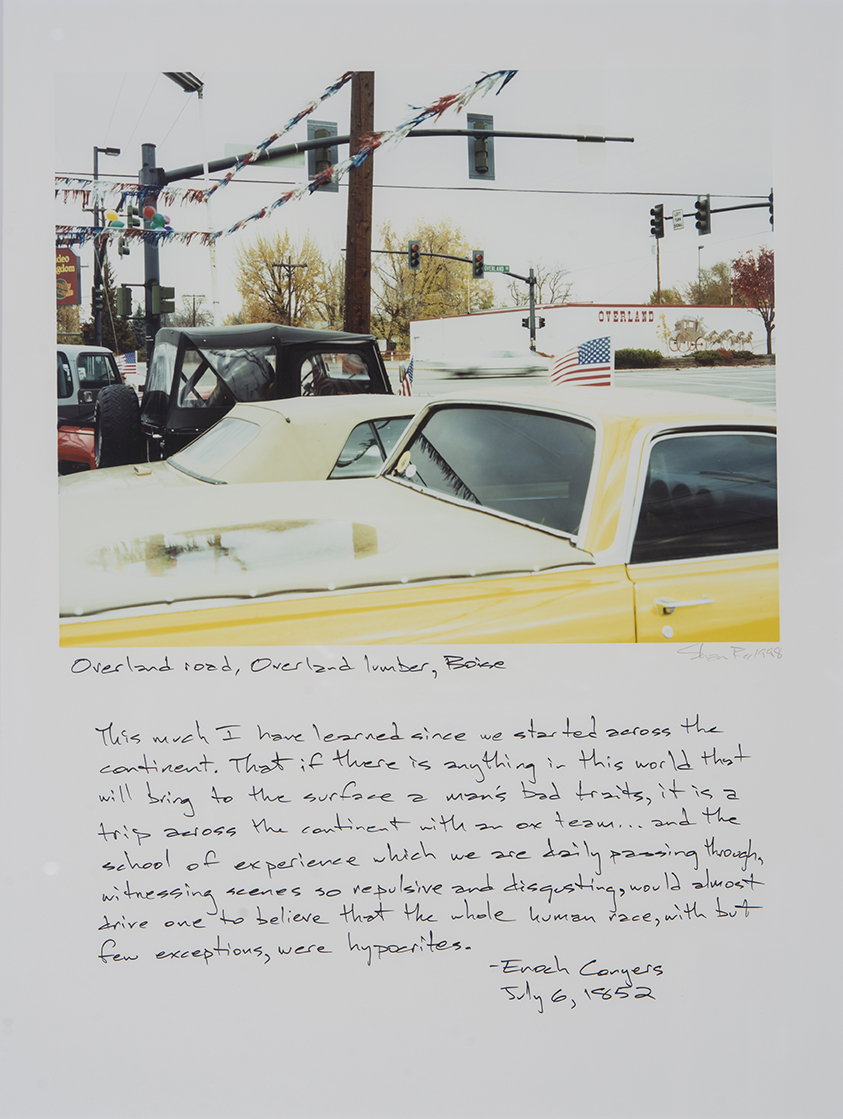 OVERLAND
OVERLAND
Overland road, Overland lumber, Boise
1998
This much I have learned since we started across the
continent. That if there is anything in this world that
will bring to the surface a man's bad traits, it is a
trip across the continent with an ox team... and the
school of experience which we are daily passing through,
witnessing scenes so repulsive and disgusting, would almost
drive one to believe that the whole human race, with but
few exceptions, were hypocrites.
-Enoch Conyers
July 6, 1852